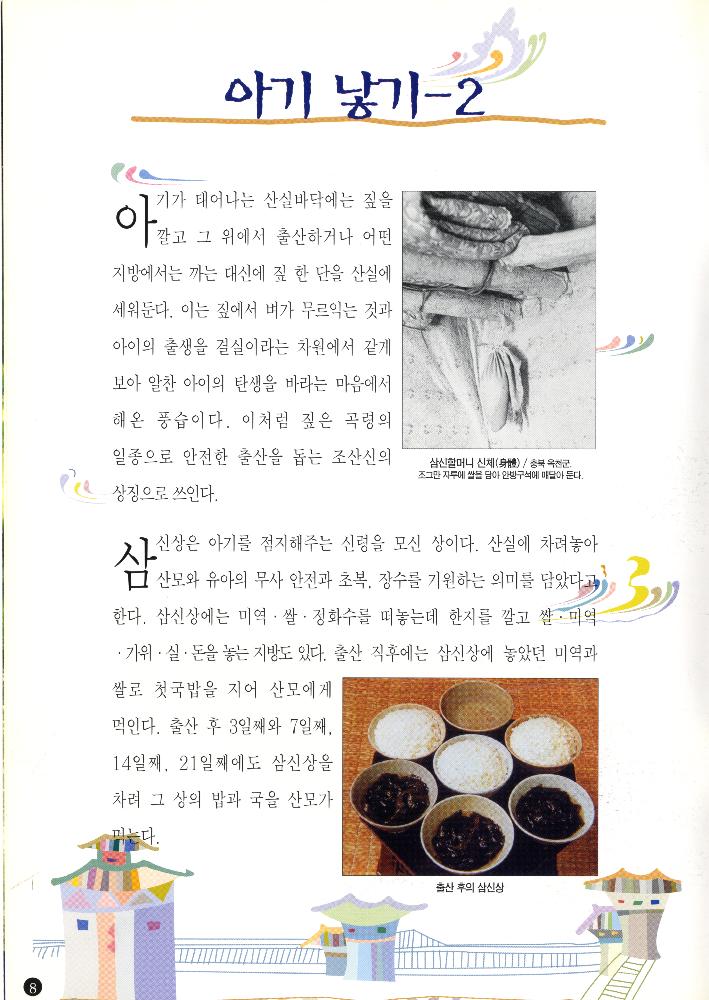 아기 낳기-2
아기가 태어나는 산실바닥에는 짚을
깔고 그 위에서 출산하거나 어떤
지방에서는 까는 대신에 짚 한 단을 산실에
세워둔다. 이는 짚에서 벼가 무르익는 것과
아이의 출생을 결실이라는 차원에서 같게
보아 알찬 아이의 탄생을 바라는 마음에서
해온 풍습이다. 이처럼 짚은 곡령의
일종으로 안전한 출산을 돕는 조산신의
상징으로 쓰인다.
삼신할머니 신체(身體) / 충북 옥천군.
조그만 자루에 쌀을 담아 안방구석에 매달아 둔다.
삼신상은 아기를 점지해주는 신령을 모신 상이다. 산실에 차려놓아
산모와 유아의 무사 안전과 초복, 장수를 기원하는 의미를 담았다고
한다. 삼신상에는 미역·쌀·정화수를 떠놓는데 한지를 깔고 쌀·미역
·가위·실·돈을 놓는 지방도 있다. 출산 직후에는 삼신상에 놓았던 미역과
쌀로 첫국밥을 지어 산모에게
먹인다. 출산 후 3일째와 7일째,
14일째, 21일째에도 삼신상을
차려 그 상의 밥과 국을 산모가
먹는다.
출산 후의 삼신상
8